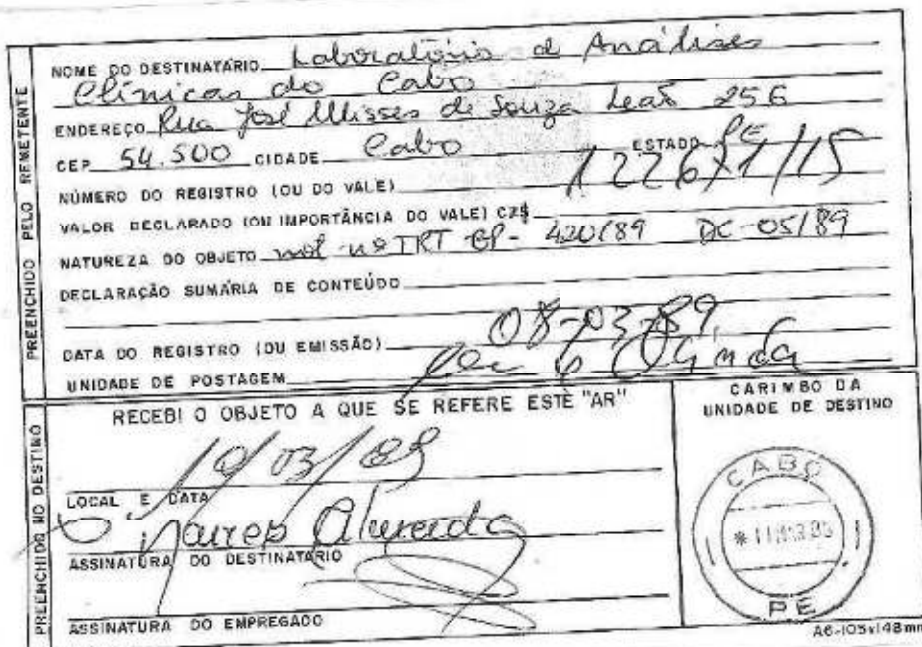 PREENCHIDO PELO REMETENTE
NOME DO DESTINATÁRIO Laboratório de Análises
Clínicas do Cabo
ENDEREÇO Rua José Ulisses de Souza Leão 256
CEP 54.500 CIDADE Cabo ESTADO PE
NÚMERO DO REGISTRO (OU DO VALE) 122671/15
VALOR DECLARADO (OU IMPORTÂNCIA DO VALE) CZ$
NATUREZA DO OBJETO nº TRT-GP-420/89 DC-05/89
DECLARAÇÃO SUMÁRIA DE CONTEÚDO
DATA DO REGISTRO (OU EMISSÃO) 08-03-89
UNIDADE DE POSTAGEM Olinda
PREENCHIDO NO DESTINO
RECEBI O OBJETO A QUE SE REFERE ESTE "AR"
10/03/89
LOCAL E DATA
Almeida
ASSINATURA DO DESTINATÁRIO
ASSINATURA DO EMPREGADO
CARIMBO DA
UNIDADE DE DESTINO
CABO
PE
A6-105x148mm